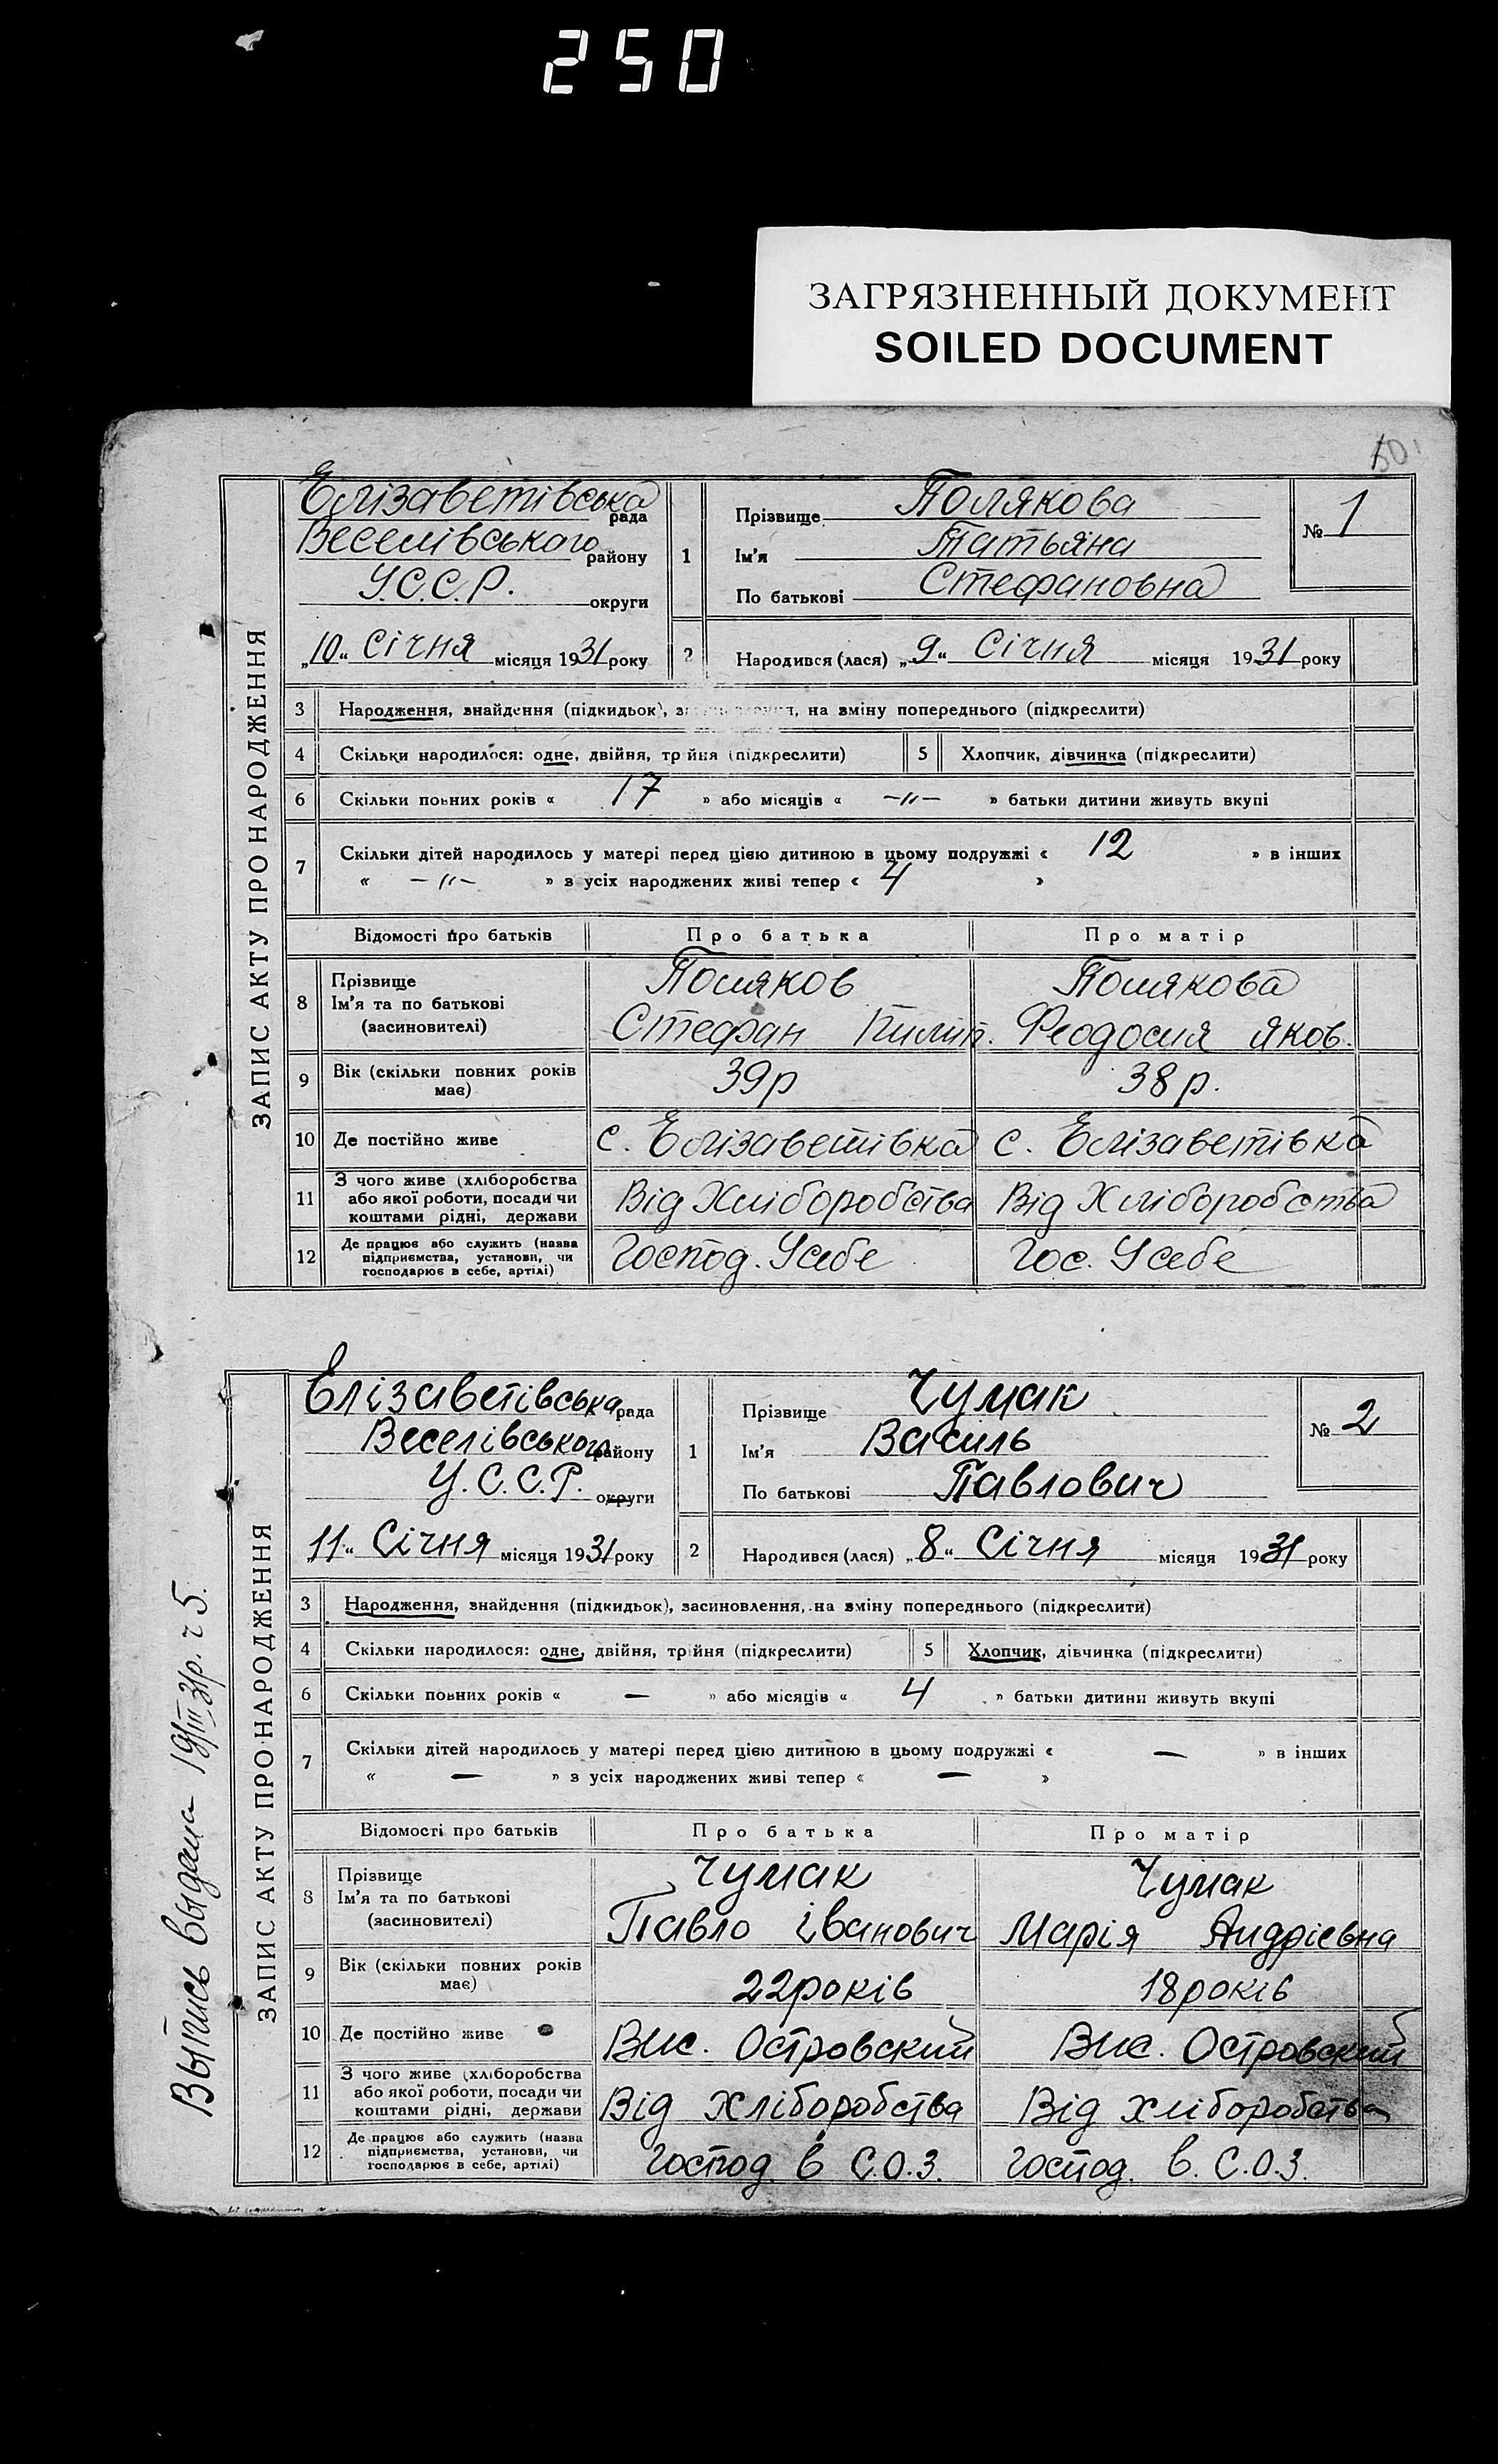 250
ЗАГРЯЗНЕННЫЙ ДОКУМЕНТ
SOILED DOCUMENT
ЗАПИС АКТУ ПРО НАРОДЖЕННЯ
Єлізаветівська рада
Веселівського району
У.С.С.Р. округи
„10“ Січня місяця 1931 року
1
Прізвище Полякова
Ім'я Татьяна
По батькові Стефановна
№ 1
2 Народився (лася) „9“ Січня місяця 1931 року
3 Народження, знайдення (підкидьок), на зміну попереднього (підкреслити)
4 Скільки народилося: одне, двійня, трійня (підкреслити) 5 Хлопчик, дівчинка (підкреслити)
6 Скільки повних років « 17 » або місяців « —〃— » батьки дитини живуть вкупі
7 Скільки дітей народилось у матері перед цією дитиною в цьому подружжі « 12 » в інших
« —〃— » з усіх народжених живі тепер « 4 »
Відомості про батьків Про батька Про матір
8 Прізвище Поляков Полякова
Ім'я та по батькові
(засиновителі) Стефан Пилип. Феодосия Яков.
9 Вік (скільки повних років має) 39р 38р.
10 Де постійно живе с. Єлізаветівка с. Єлізаветівка
11 З чого живе (хліборобства
або якої роботи, посади чи
коштами рідні, держави Від Хліборобства Від Хліборобства
12 Де працює або служить (назва
підприємства, установи, чи
господарює в себе, артілі) Господ. Усебе Гос. Усебе
ЗАПИС АКТУ ПРО НАРОДЖЕННЯ
Єлізаветівська рада
Веселівського району
У.С.С.Р. округи
„11“ Січня місяця 1931 року
1
Прізвище Чумак
Ім'я Василь
По батькові Павлович
№ 2
2 Народився (лася) „8“ Січня місяця 1931 року
3 Народження, знайдення (підкидьок), засиновлення, на зміну попереднього (підкреслити)
4 Скільки народилося: одне, двійня, трійня (підкреслити) 5 Хлопчик, дівчинка (підкреслити)
6 Скільки повних років « — » або місяців « 4 » батьки дитини живуть вкупі
7 Скільки дітей народилось у матері перед цією дитиною в цьому подружжі « — » в інших
« — » з усіх народжених живі тепер « — »
Відомості про батьків Про батька Про матір
8 Прізвище Чумак Чумак
Ім'я та по батькові
(засиновителі) Павло Іванович Марія Андрієвна
9 Вік (скільки повних років має) 22років 18років
10 Де постійно живе Вис. Островский Вис. Островский
11 З чого живе (хліборобства
або якої роботи, посади чи
коштами рідні, держави Від Хліборобства Від Хліборобства
12 Де працює або служить (назва
підприємства, установи, чи
господарює в себе, артілі) Господ. в С.О.З. Господ. в. С.О.З.
Выпись выдана 19/III 31р. ч 5.